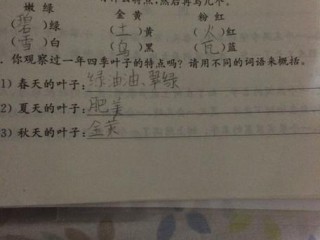 什么特点,然后再写几个。
嫩绿 金黄 粉红
(碧)绿 (土)黄 (火)红
(雪)白 (乌)黑 (瓦)蓝
.你观察过一年四季叶子的特点吗? 请用不同的词语来概括。
1)春天的叶子:绿油油、翠绿
2)夏天的叶子:肥美
3)秋天的叶子:金黄